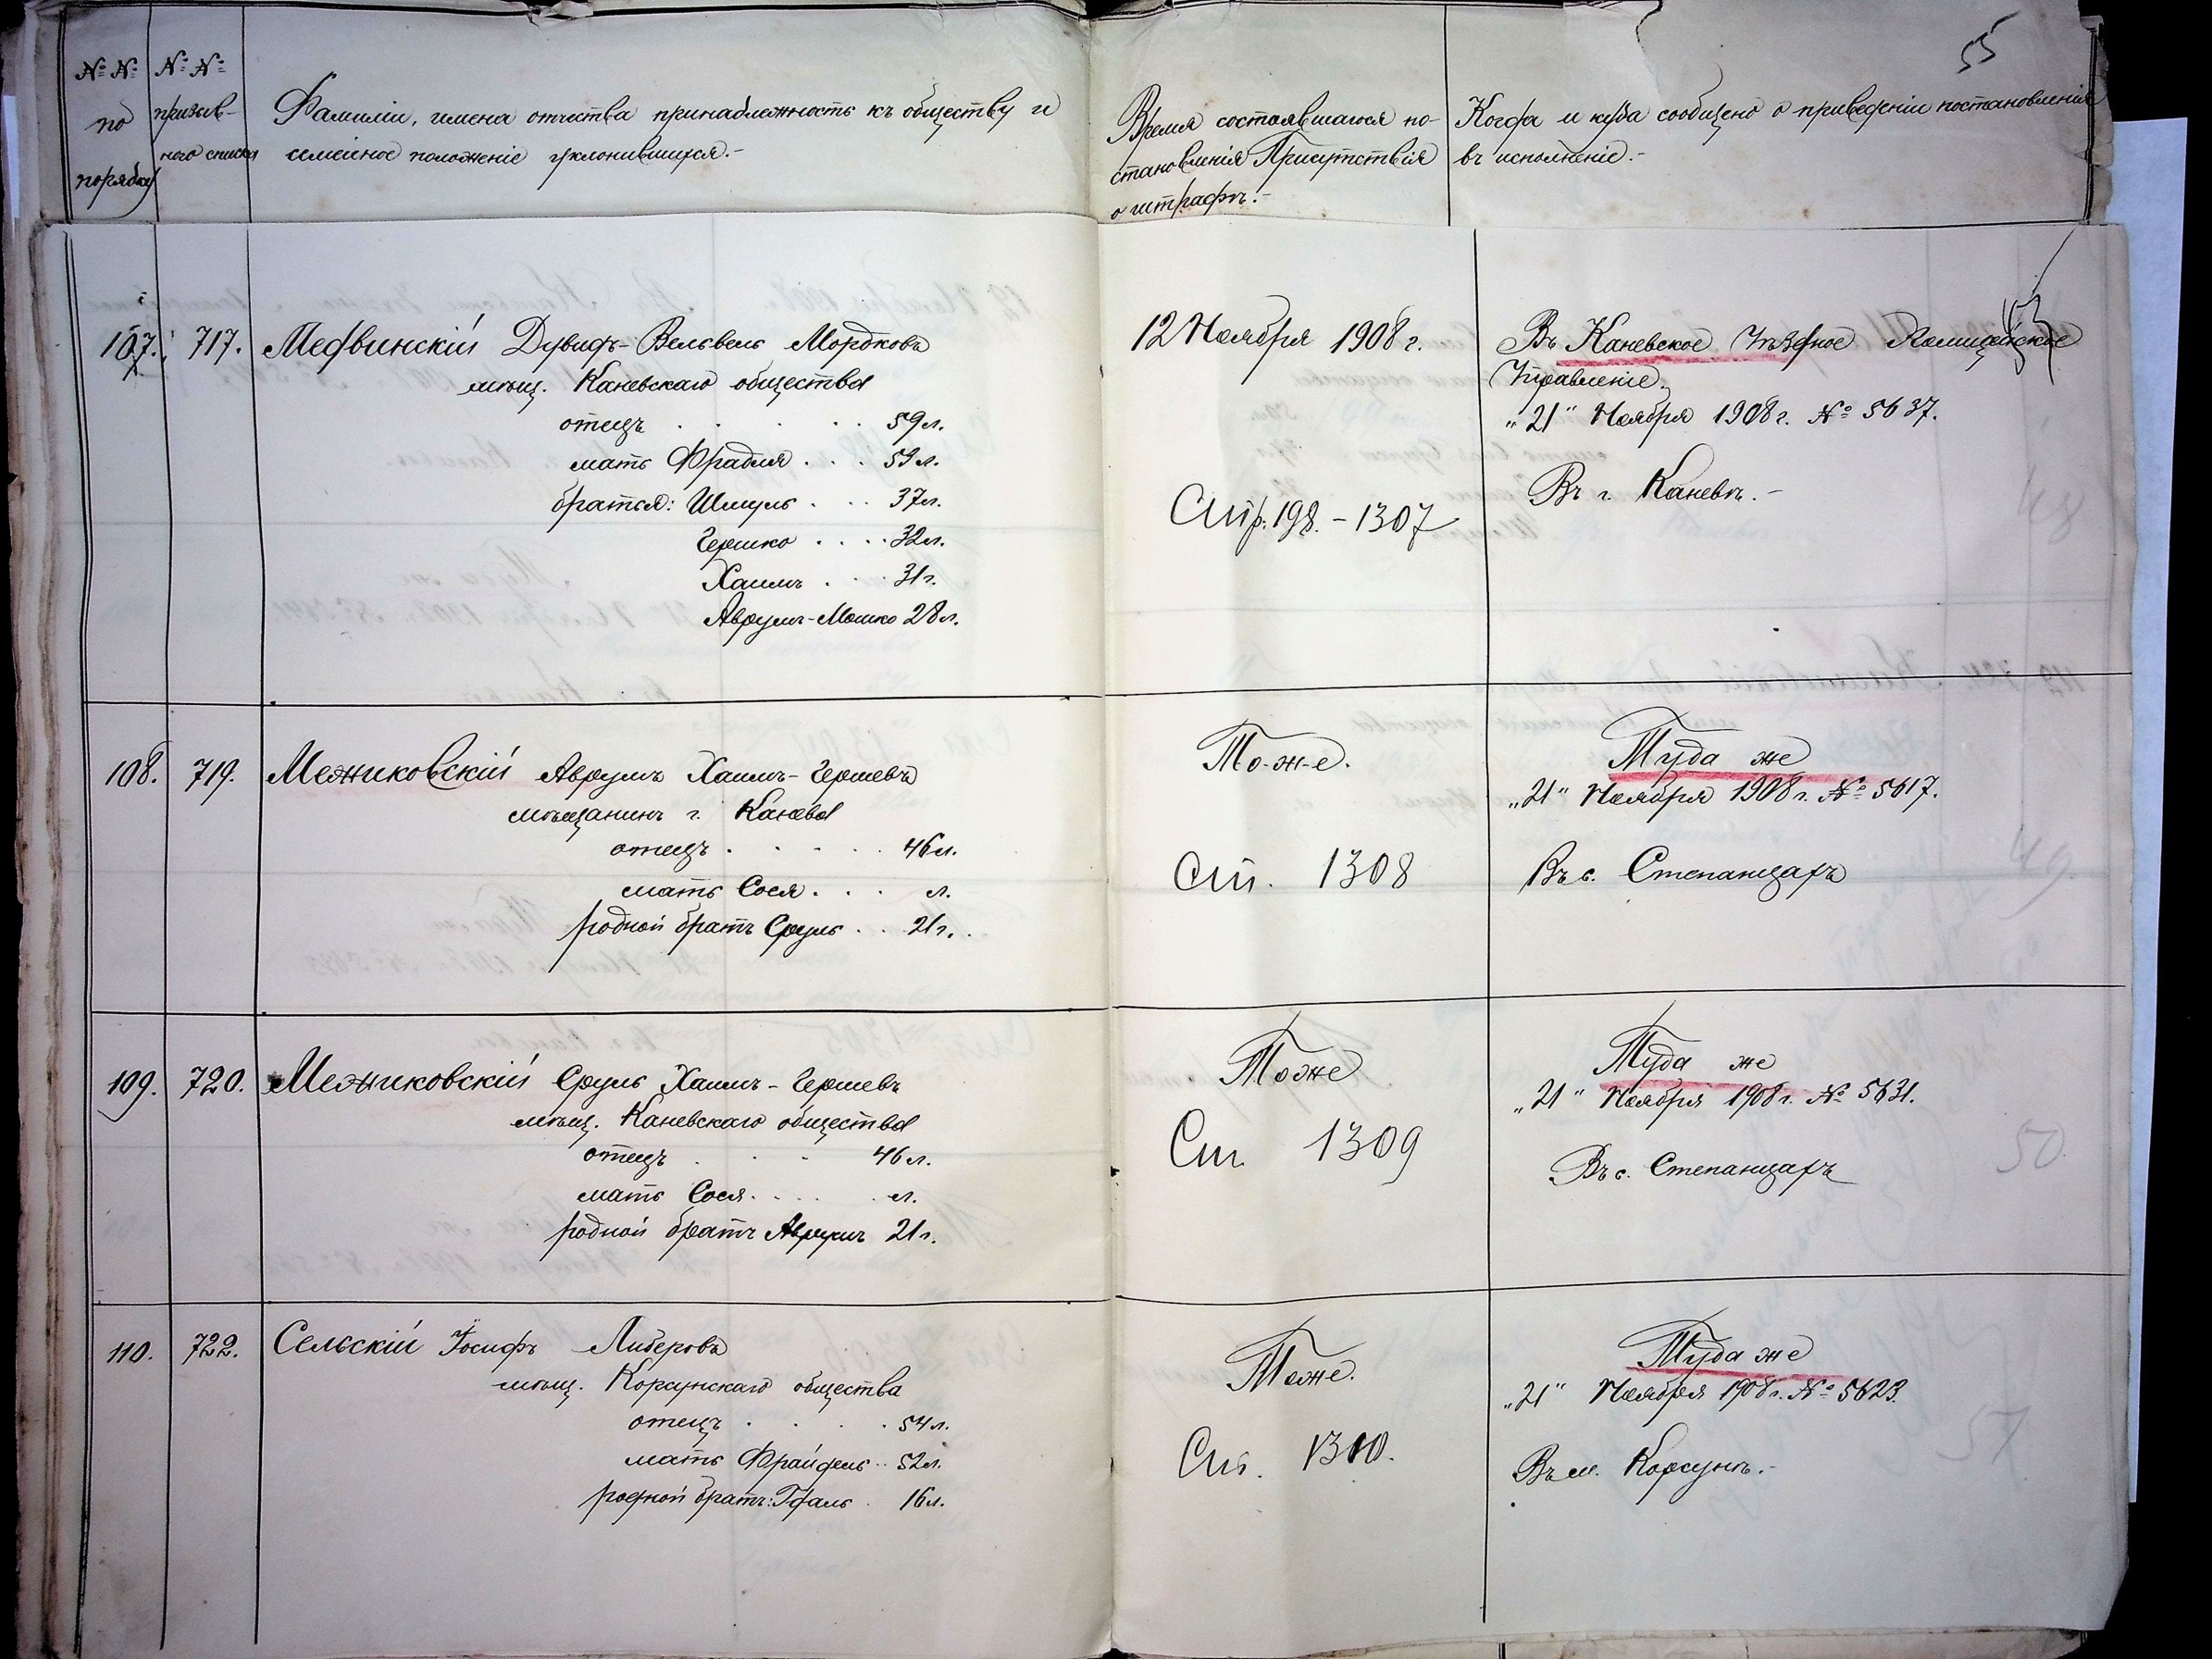 55
№№ по порядку
№№ призыв-
ного списка
Фамиліи, имена отчества принадлежность къ обществу и
семейное положеніе уклонившихся.-
Время состоявшагося по-
становленія Присутствія
о штрафѣ.-
Когда и куда сообщено о приведеніи постановленія
въ исполненіе.-
107. 717. Медвинскій Дувидъ-Вельвель Мордковъ
мѣщ. Каневскаго общества
отецъ . . . . 59 л.
мать Фрадля . . . 59 л.
братья: Шмуль . . . 37 л.
Гершко . . . . 32 л.
Хаимъ . . . 31 г.
Аврумъ-Мошко 28 л.
12 Ноября 1908 г.
Стр. 198. - 1307
Въ Каневское Уѣздное Полицейское
Управленіе.
„21" Ноября 1908 г. № 5637.
Въ г. Каневѣ.-
48
108. 719. Межиковскій Аврумъ Хаимъ-Гершевъ
мѣщанинъ г. Канева
отецъ . . . . . 46 л.
мать Сося . . . л.
родной братъ Сруль . . 21 г.
То-ж-е.
Ст. 1308
Туда же
„21" Ноября 1908 г. № 5617.
Въ с. Степанцахъ
49
109. 720. Межиковскій Сруль Хаимъ-Гершевъ
мѣщ. Каневскаго общества
отецъ . . . 46 л.
мать Сося . . . . л.
родной братъ Аврумъ 21 г.
Тоже
Ст. 1309
Туда же
„21" Ноября 1908 г. № 5631.
Въ с. Степанцахъ
50
110. 722. Сельскій Іосифъ Либеровъ
мѣщ. Корсунскаго общества
отецъ . . . . 54 л.
мать Фрайдель . . 52 л.
родной братъ: . 16 л.
Тоже.
Ст. 1310.
Туда же
„21" Ноября 1908 г. № 5623.
Въ м. Корсунѣ.-
51